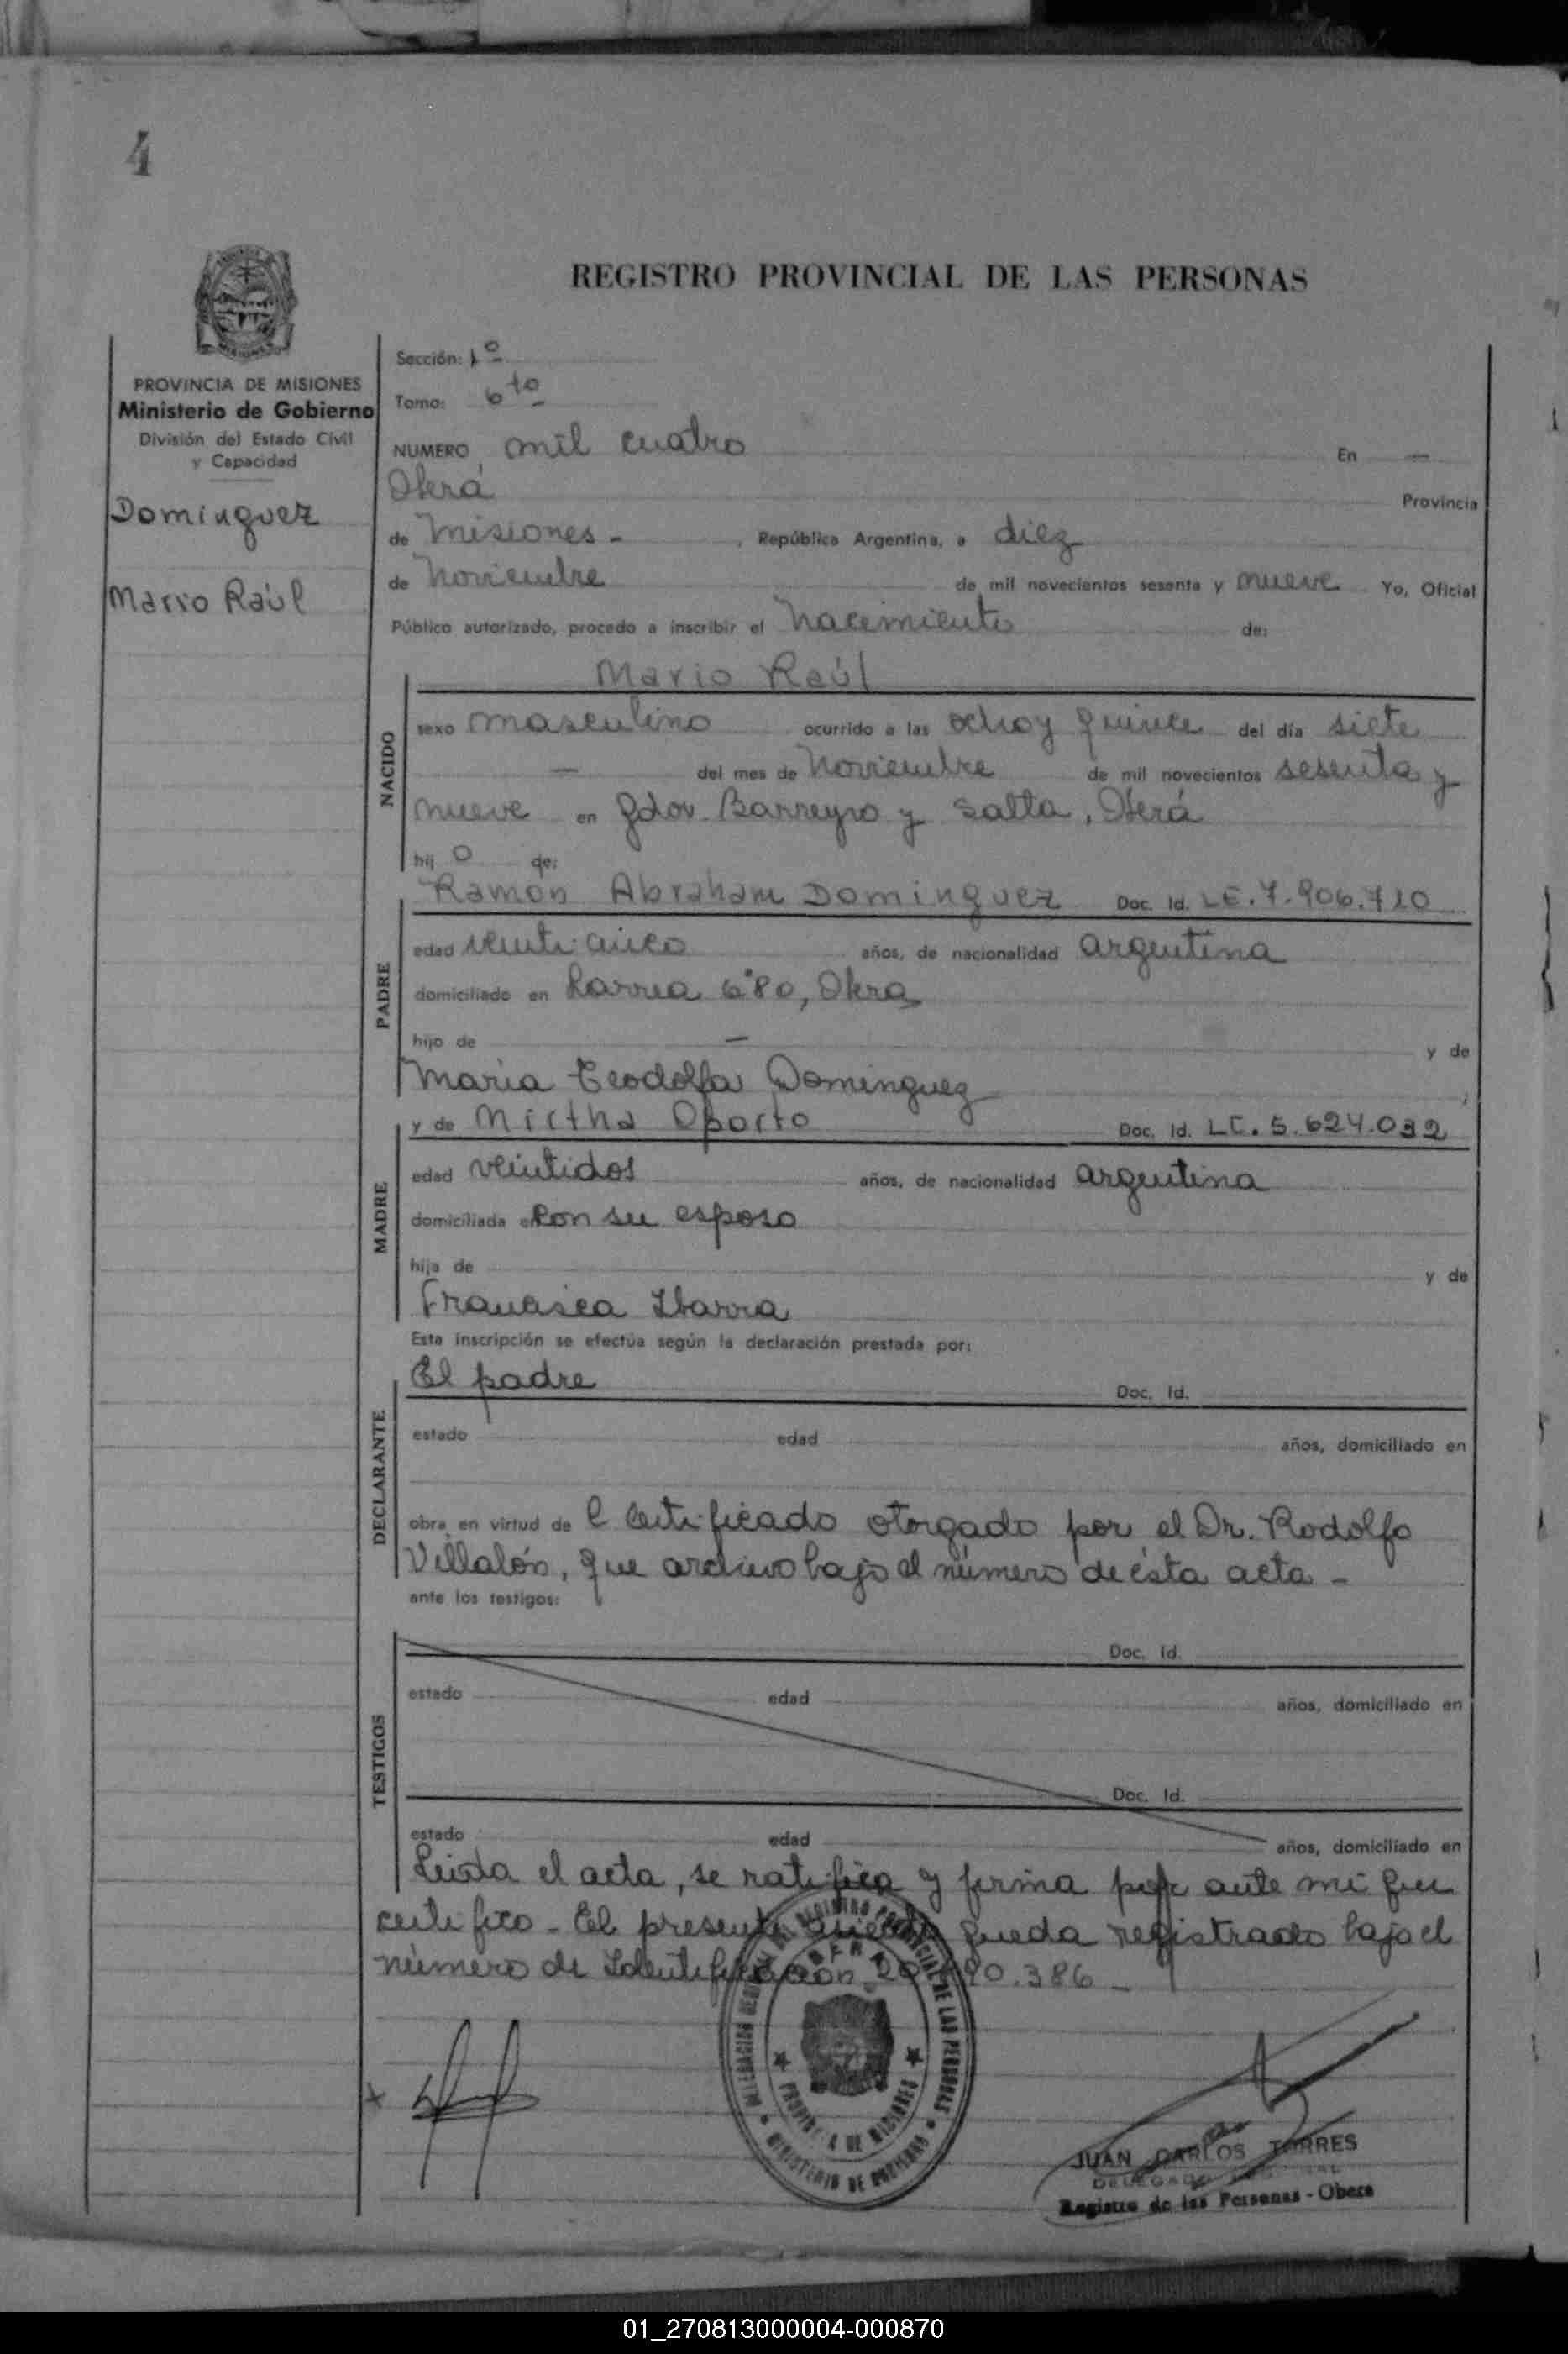 4
REGISTRO PROVINCIAL DE LAS PERSONAS
PROVINCIA DE MISIONES
Ministerio de Gobierno
División del Estado Civil
y Capacidad
Dominguez
Mario Raúl
Sección: 1º
Tomo: 6to
NUMERO mil cuatro En —
Oberá Provincia
de Misiones - , República Argentina, a diez
de Noviembre de mil novecientos sesenta y nueve Yo, Oficial
Público autorizado, procedo a inscribir el Nacimiento de:
Mario Raúl
NACIDO
sexo masculino ocurrido a las ocho y quince del día siete
— del mes de Noviembre de mil novecientos sesenta y
nueve en Gdor. Barreyro y Salta, Oberá
hij o de:
Ramón Abraham Dominguez Doc. Id. LE. 7.906.710
PADRE
edad veinticinco años, de nacionalidad argentina
domiciliado en Larrea 680, Obera
hijo de — y de
Maria Teodolfa Dominguez
y de Mirtha Oporto Doc. Id. LC. 5.624.032
MADRE
edad veintidos años, de nacionalidad argentina
domiciliada en Con su esposo
hija de y de
Francisca Ibarra
Esta inscripción se efectúa según la declaración prestada por:
El padre Doc. Id.
DECLARANTE
estado edad años, domiciliado en
obra en virtud de l certificado otorgado por el Dr. Rodolfo
Villalón, que archivo bajo el número de ésta acta -
ante los testigos:
TESTIGOS
Doc. Id.
estado edad años, domiciliado en
Doc. Id.
estado edad años, domiciliado en
Leida el acta, se ratifica y firma por ante mi que
certifico - El presente queda registrado bajo el
número de Identificación .386 -
DELEGACION REGISTRO PROVINCIAL DE LAS PERSONAS
OBERA
PROVINCIA DE MISIONES
MINISTERIO DE GOBIERNO
JUAN CARLOS TORRES
DELEGADO
Registro de las Personas - Obera
01_270813000004-000870